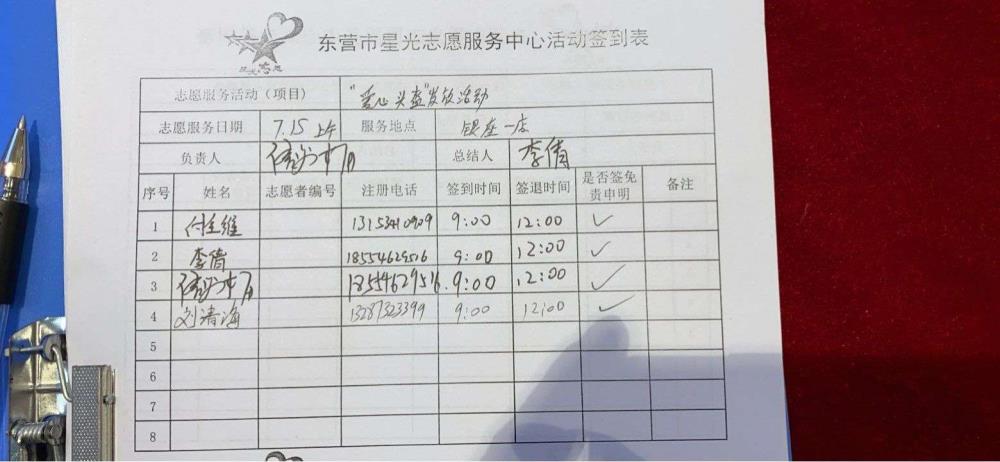 东营市星光志愿服务中心活动签到表
志愿服务活动（项目） "爱心头盔"发放活动
志愿服务日期 7.15 上午 服务地点 银座一店
负责人 总结人 李倩
序号 姓名 志愿者编号 注册电话 签到时间 签退时间 是否签免责申明 备注
1 付全维 9:00 12:00 ✓
2 李倩 18554629516 9:00 12:00 ✓
3 18554629516 9:00 12:00 ✓
4 刘清海 13287323399 9:00 12:00 ✓
5
6
7
8